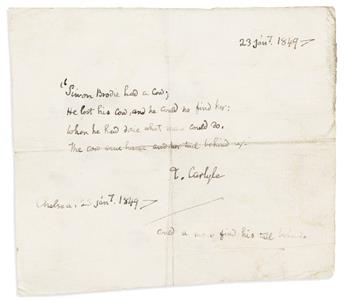 23 jany. 1849
"Simon Brodie had a cow;
He lost his cow, and he could na find her:
When he had done what man could do.
The cow cam hame and her tail behind her.
T. Carlyle
Chelsea, 23 jany. 1849
and a man find his tail behind.